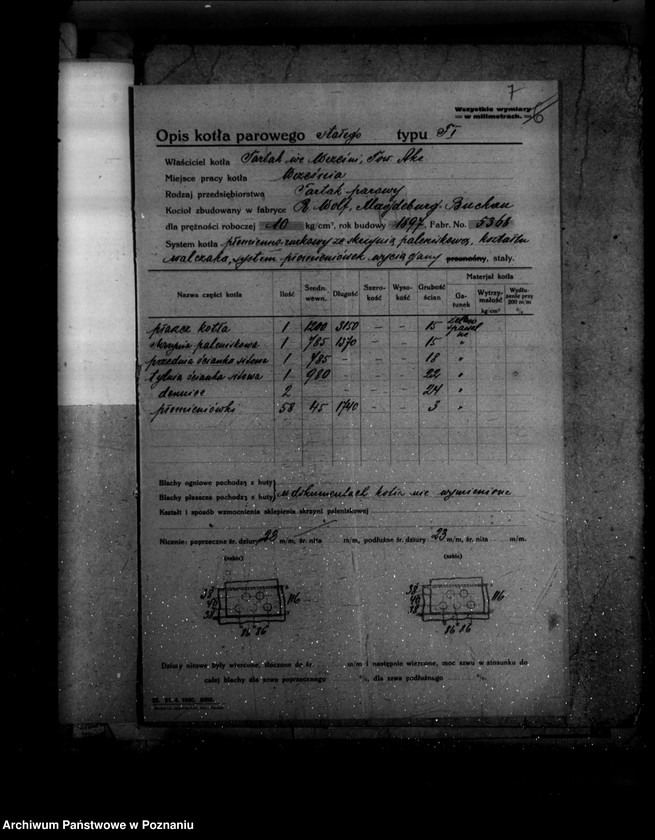 7
Wszystkie wymiary
— w milimetrach. —
Opis kotła parowego stałego typu
Właściciel kotła Tartak we Wrześni, Tow. Akc
Miejsce pracy kotła Września
Rodzaj przedsiębiorstwa Tartak parowy
Kocioł zbudowany w fabryce R. Wolf, Magdeburg-Buckau
dla prężności roboczej 10 kg/cm², rok budowy 1897, Fabr. No. 5368
System kotła płomienno-rurkowy ze skrzynią paleniskową, kształtu
walczaka, system płomieniówek wyciągany przenośny, stały.
Nazwa części kotła Ilość Średn. wewn. Długość Szerokość Wysokość Grubość ścian Materjał kotła
Gatunek Wytrzymałość kg/cm² Wydłużenie przy 200 m/m %
płaszcz kotła 1 1200 3150 – – 15
skrzynia paleniskowa 1 785 1370 – – 15 "
przednia ścianka sitowa 1 785 – – – 18 "
tylnia ścianka sitowa 1 980 – – – 22 "
dennice 2 – – – – 24 "
płomieniówki 58 45 1740 – – 3 "
Blachy ogniowe pochodzą z huty
Blachy płaszcza pochodzą z huty w dokumentach kotła nie wymienione
Kształt i sposób wzmocnienia sklepienia skrzyni paleniskowej
Nicenie: poprzeczne śr. dziury 23 m/m, śr. nita m/m, podłużne śr. dziury 23 m/m, śr. nita m/m.
(szkic) (szkic)
38 38
40 116 40 116
38 38
86 86 86 86
Dziury nitowe były wiercone, tłoczone do śr. m/m i następnie wiercone, moc szwu w stosunku do
całej blachy dla szwa poprzecznego %, dla szwa podłużnego %.
Archiwum Państwowe w Poznaniu